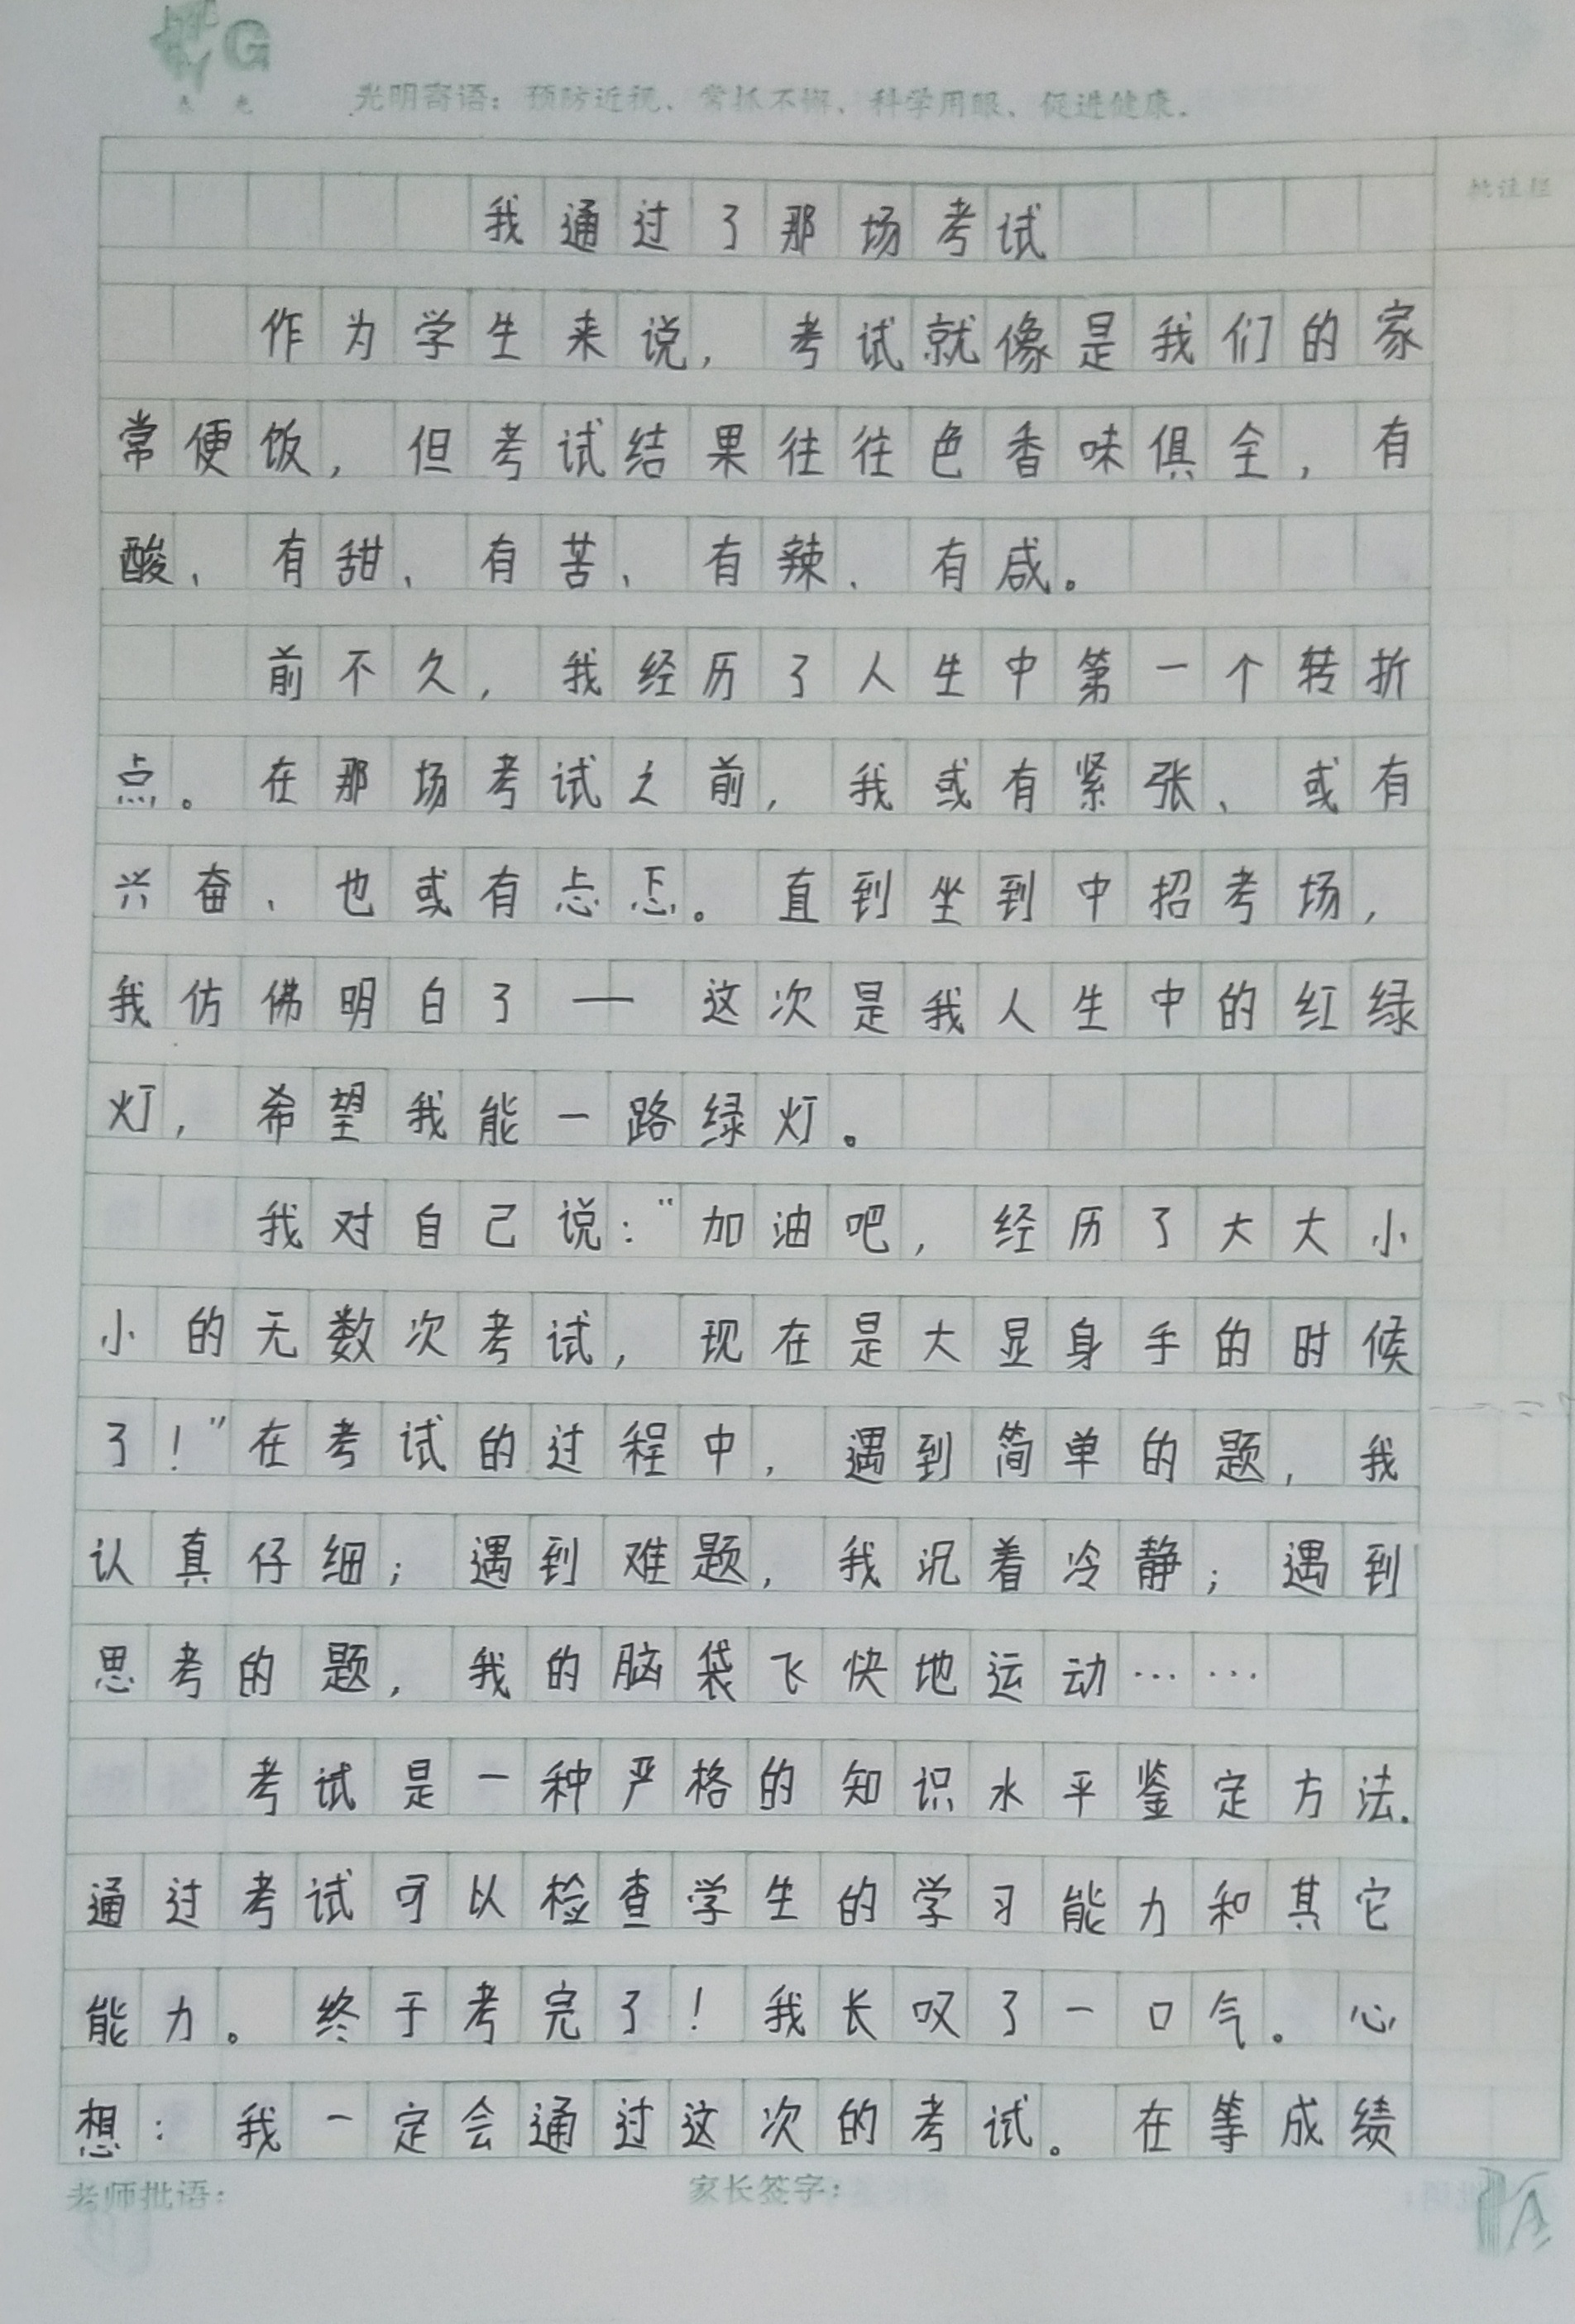 G
光明寄语：预防近视、常抓不懈、科学用眼、促进健康。
批注栏
我通过了那场考试
作为学生来说，考试就像是我们的家
常便饭，但考试结果往往色香味俱全，有
酸、有甜、有苦、有辣、有咸。
前不久，我经历了人生中第一个转折
点。在那场考试之前，我或有紧张、或有
兴奋、也或有忐忑。直到坐到中招考场，
我仿佛明白了——这次是我人生中的红绿
灯，希望我能一路绿灯。
我对自己说：“加油吧，经历了大大小
小的无数次考试，现在是大显身手的时候
了！”在考试的过程中，遇到简单的题，我
认真仔细；遇到难题，我沉着冷静；遇到
思考的题，我的脑袋飞快地运动……
考试是一种严格的知识水平鉴定方法。
通过考试可以检查学生的学习能力和其它
能力。终于考完了！我长叹了一口气。心
想：我一定会通过这次的考试。在等成绩
老师批语：
家长签字：